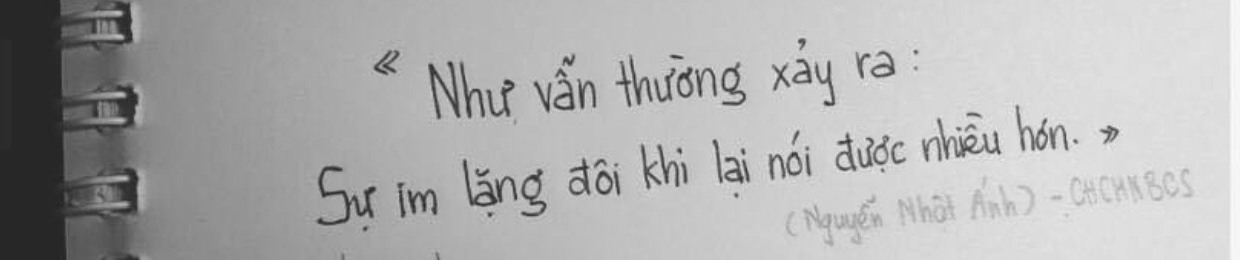 « Như vẫn thường xảy ra :
Sự im lặng đôi khi lại nói được nhiều hơn. »
(Nguyễn Nhật Ánh) - CHCHNBCS